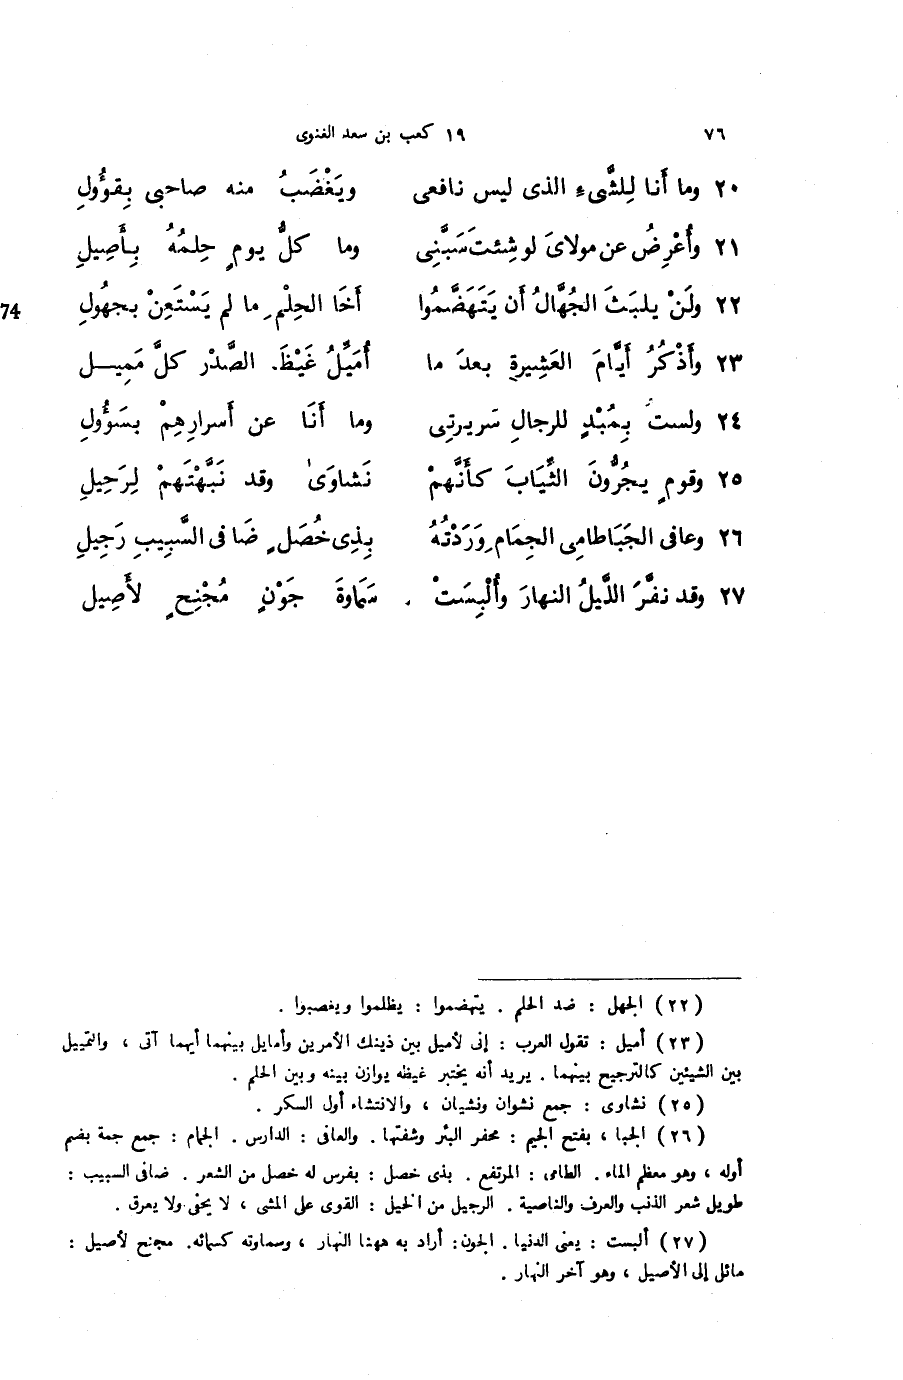 ٧٦ ١٩ كعب بن سعد الغنوى
٢٠ وما أَنا لِلشَّىءِ الذى ليس نافعى ويَغْضَبُ منه صاحبى بِقَؤُولِ
٢١ وأُعْرِضُ عن مولاىَ لو شِئتَ سَبَّنِى وما كلُّ يومٍ حِلمُهُ بِأَصِيلِ
٢٢ ولَنْ يلبَثَ الجُهَّالُ أن يَتَهَضَّمُوا أَخَا الحِلْمِ ما لم يَسْتَعِنْ بجهُولِ
74
٢٣ وأَذْكُرُ أيَّامَ العَشِيرةِ بعدَ ما أُمَيِّلُ غَيْظَ الصَّدْرِ كلَّ مَمِيل
٢٤ ولستُ بِمُبْدٍ للرجالِ سَريرتِى وما أَنَا عن أَسرارِهِمْ بسَؤُولِ
٢٥ وقومٍ يجُرُّونَ الثِّيَابَ كأَنَّهمْ نَشاوَى وقد نَبَّهْتَهمْ لِرَحِيلِ
٢٦ وعافى الجَبَاطامِى الجِمَامِ وَرَدْتُهُ بِذِى خُصَلٍ ضَافى السَّبِيبِ رَجِيلِ
٢٧ وقد نفَّرَ اللَّيلُ النهارَ وأُلْبِسَتْ سَمَاوةَ جَوْنٍ مُجْنِحٍ لأَصِيل
(٢٢) الجهل : ضد الحلم . يتهضموا : يظلموا ويغصبوا .
(٢٣) أميل : تقول العرب : إنى لأميل بين ذينك الأمرين وأمايل بينهما أيهما آتى ، والتمييل
بين الشيئين كالترجيح بينهما . يريد أنه يختبر غيظه يوازن بينه وبين الحلم .
(٢٥) نشاوى : جمع نشوان ونشيان ، والانتشاء أول السكر .
(٢٦) الجبا ، بفتح الجيم : محفر البئر وشفتها . والعافى : الدارس . الجمام : جمع جمة بضم
أوله ، وهو معظم الماء . الطامى : المرتفع . بذى خصل : بفرس له خصل من الشعر . ضافى السبيب :
طويل شعر الذنب والعرف والناصية . الرجيل من الخيل : القوى على المشى ، لا يحفى ولا يعرق .
(٢٧) ألبست : يعنى الدنيا . الجون: أراد به ههنا النهار ، وسماوته كسمائه. مجنح لأصيل :
مائل إلى الأصيل ، وهو آخر النهار .